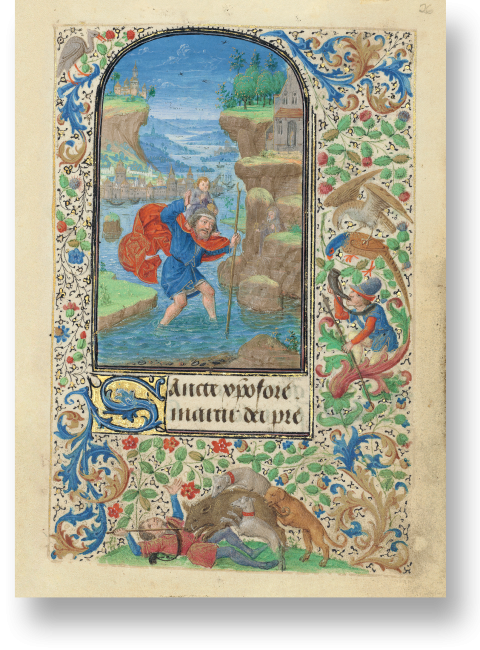 Sancte xpofore
martir dei pre